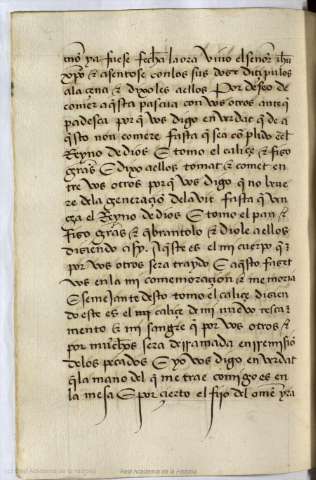 mo ya fuese fecha la ora vino el señor ihu
xpo τ asentose con los sus doze diçipulos
a la çena τ dixoles a ellos Por deseo de
comer aquesta pascua con vos otros ante q̃
padesca por q̃ vos digo en verdat q̃ de a
q̃sto non comere fasta q̃ sea conplido en el
Reyno de dios E tomo el caliçe τ fizo
grãs E dixo a ellos tomat τ comet en
tre vos otros por q̃ vos digo q̃ no beue
re de la generaçiõ de la vit fasta q̃ ven
ga el Reyno de dios E tomo el pan τ
fizo grãs τ q̃brantolo τ diole a ellos
disiendo asy Aqueste es el mi cuerpo q̃
por vos otros sera traydo E aq̃sto faset
vos en la mi comemoraçion τ memoria
E semejante desto tomo el caliçe disien
do este es el mi caliçe de mi nueuo testa
mento τ mi sangre q̃ por vos otros τ
por muchos sera derramada en rremisiõ
de los pecados E yo vos digo en verdat
q̃ la mano del q̃ me trae comigo es en
la mesa E por çierto el fijo del ome yra
Real Academia de la Historia
Real Academia de la Historia